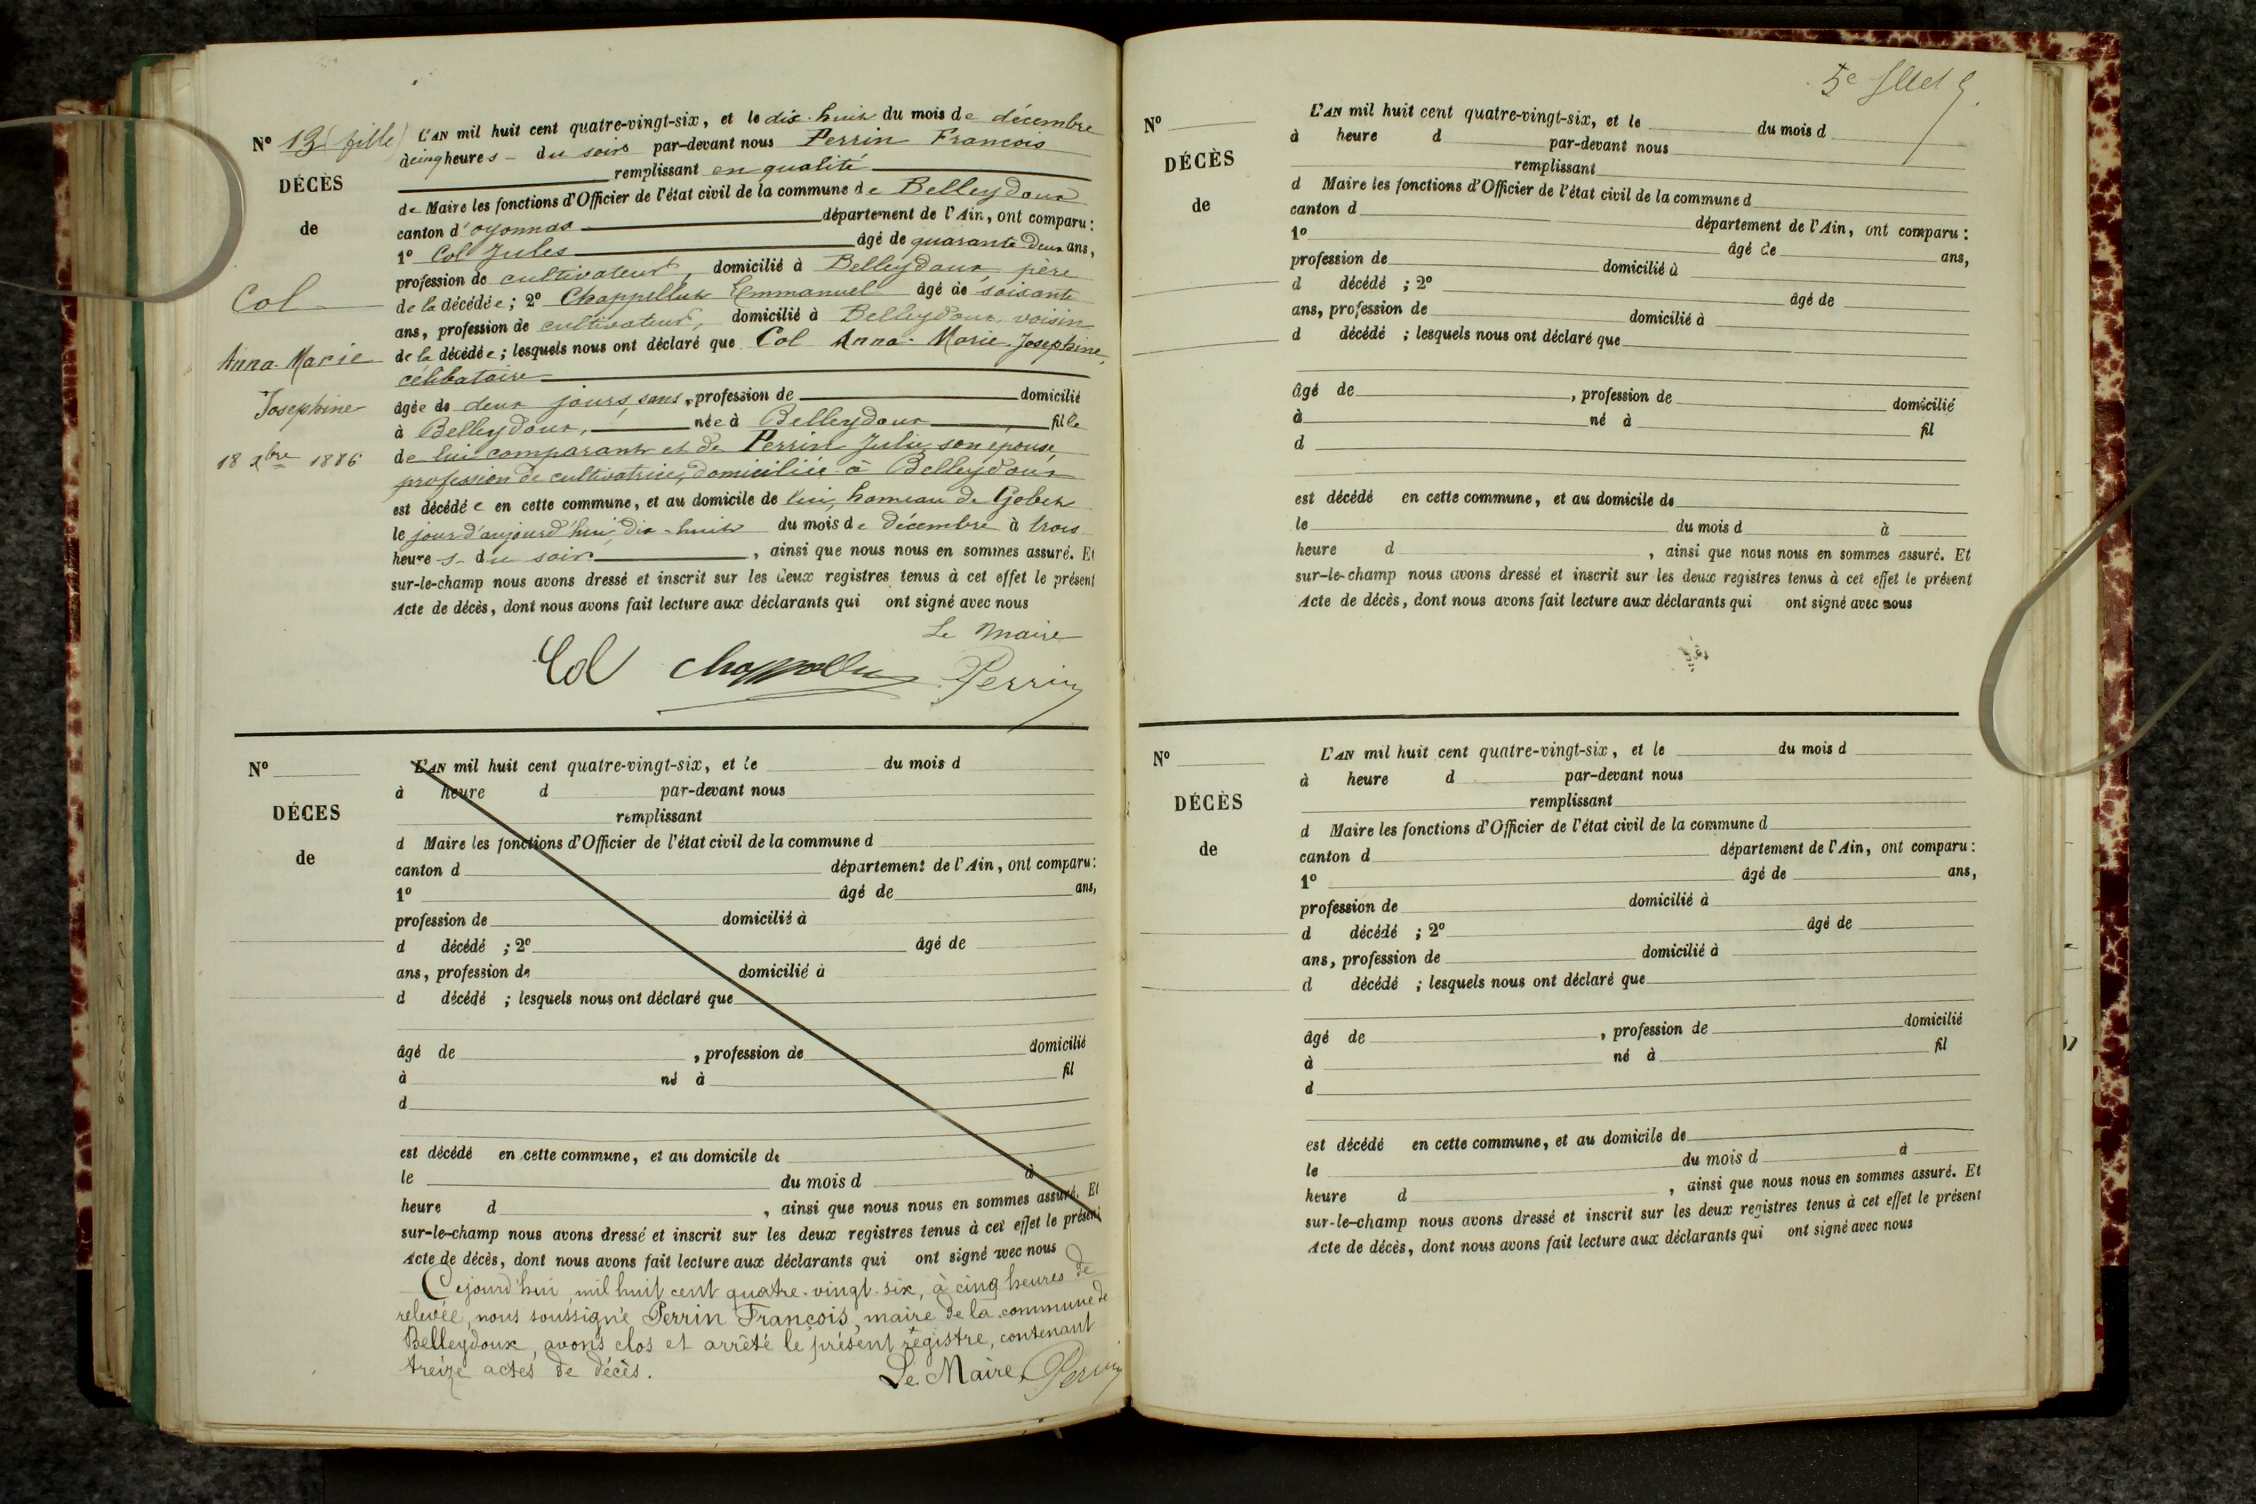 Nº 13 (fille)
DÉCÈS
de
Col
Anna-Marie
Josephine
18 Xbre 1886
L'AN mil huit cent quatre-vingt-six, et le dix-huit du mois de décembre
à cinq heures du soir par-devant nous Perrin François
remplissant en qualité
de Maire les fonctions d'Officier de l'état civil de la commune de Belleydoux
canton d'oyonnax département de l'Ain, ont comparu :
1º Col Jules âgé de quarante deux ans,
profession de cultivateur, domicilié à Belleydoux, père
de la décédée ; 2º Chappelluz Emmanuel âgé de soisante
ans, profession de cultivateur, domicilié à Belleydoux voisin
de la décédée ; lesquels nous ont déclaré que Col Anna-Marie Josephine,
célibataire
âgée de deux jours, sans, profession de domicilié
à Belleydoux, née à Belleydoux fille
de lui comparant et de Perrin Julie son épouse,
profession de cultivatrice, domiciliée à Belleydoux
est décédée en cette commune, et au domicile de lui, hameau de Gobet
le jour d'aujourd'hui, dix-huit du mois de décembre à trois
heures du soir , ainsi que nous nous en sommes assuré. Et
sur-le-champ nous avons dressé et inscrit sur les deux registres tenus à cet effet le présent
Acte de décès, dont nous avons fait lecture aux déclarants qui ont signé avec nous
Le Maire
Col Perrin
Nº
DÉCES
de
L'AN mil huit cent quatre-vingt-six, et le du mois d
à heure d par-devant nous
remplissant
d Maire les fonctions d'Officier de l'état civil de la commune d
canton d département de l'Ain, ont comparu :
1º âgé de ans,
profession de domicilié à
d décédé ; 2º âgé de
ans, profession de domicilié à
d décédé ; lesquels nous ont déclaré que
âgé de , profession de domicilié
à né à fil
d
est décédé en cette commune, et au domicile de
le du mois d à
heure d , ainsi que nous nous en sommes assuré. Et
sur-le-champ nous avons dressé et inscrit sur les deux registres tenus à cet effet le présent
Acte de décès, dont nous avons fait lecture aux déclarants qui ont signé avec nous
Cejourd'hui, mil huit cent quatre-vingt-six, à cinq heures de
relevée, nous soussigné Perrin François, maire de la commune de
Belleydoux, avons clos et arrêté le présent registre, contenant
treize actes de décès.
Le Maire, Perrin
5e
Nº
DÉCÈS
de
L'AN mil huit cent quatre-vingt-six, et le du mois d
à heure d par-devant nous
remplissant
d Maire les fonctions d'Officier de l'état civil de la commune d
canton d département de l'Ain, ont comparu :
1º âgé de ans,
profession de domicilié à
d décédé ; 2º âgé de
ans, profession de domicilié à
d décédé ; lesquels nous ont déclaré que
âgé de , profession de domicilié
à né à fil
d
est décédé en cette commune, et au domicile de
le du mois d à
heure d , ainsi que nous nous en sommes assuré. Et
sur-le-champ nous avons dressé et inscrit sur les deux registres tenus à cet effet le présent
Acte de décès, dont nous avons fait lecture aux déclarants qui ont signé avec nous
Nº
DÉCÈS
de
L'AN mil huit cent quatre-vingt-six, et le du mois d
à heure d par-devant nous
remplissant
d Maire les fonctions d'Officier de l'état civil de la commune d
canton d département de l'Ain, ont comparu :
1º âgé de ans,
profession de domicilié à
d décédé ; 2º âgé de
ans, profession de domicilié à
d décédé ; lesquels nous ont déclaré que
âgé de , profession de domicilié
à né à fil
d
est décédé en cette commune, et au domicile de
le du mois d à
heure d , ainsi que nous nous en sommes assuré. Et
sur-le-champ nous avons dressé et inscrit sur les deux registres tenus à cet effet le présent
Acte de décès, dont nous avons fait lecture aux déclarants qui ont signé avec nous